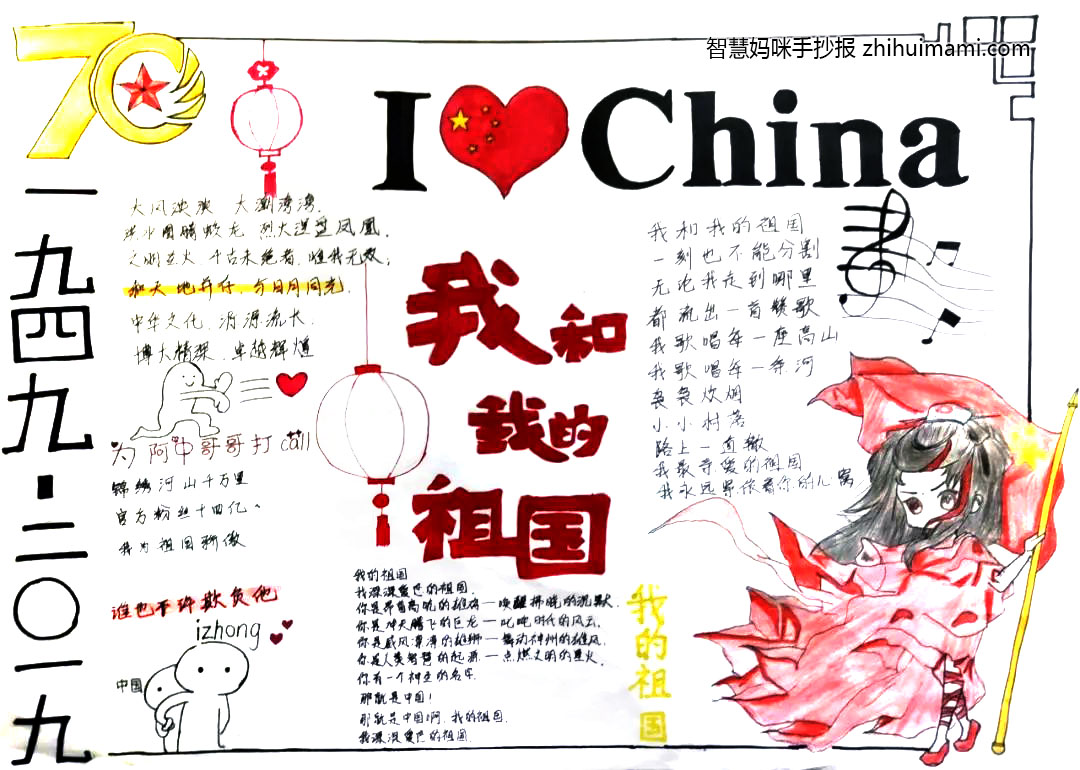 智慧妈咪手抄报 zhihuimami.com
70
I China
一九四九·二〇一九
大风泱泱 大潮滂滂.
洪水图腾蛟龙 烈火涅槃凤凰,
文明圣火 千古未绝者,惟我无双;
和天地并存,与日月同光.
中华文化,渊源流长,
博大精深,卓越辉煌
为阿中哥哥打call
锦绣河山千万里
官方粉丝十四亿
我为祖国骄傲
谁也不许欺负他
izhong
中国
我和
我的
祖国
我和我的祖国
一刻也不能分割
无论我走到哪里
都流出一首赞歌
我歌唱每一座高山
我歌唱每一条河
袅袅炊烟
小小村落
路上一道辙
我最亲爱的祖国
我永远紧依着你的心窝
我的祖国
我深深爱恋的祖国.
你是昂首高吭的雄鸡—唤醒拂晓的沉默.
你是冲天腾飞的巨龙—叱咤时代的风云,
你是威风凛凛的雄狮—舞动神州的雄风,
你是人类智慧的起源—点燃文明的星火.
你有一个神圣的名字.
那就是中国!
那就是中国啊,我的祖国.
我深深爱恋的祖国.
我的祖国